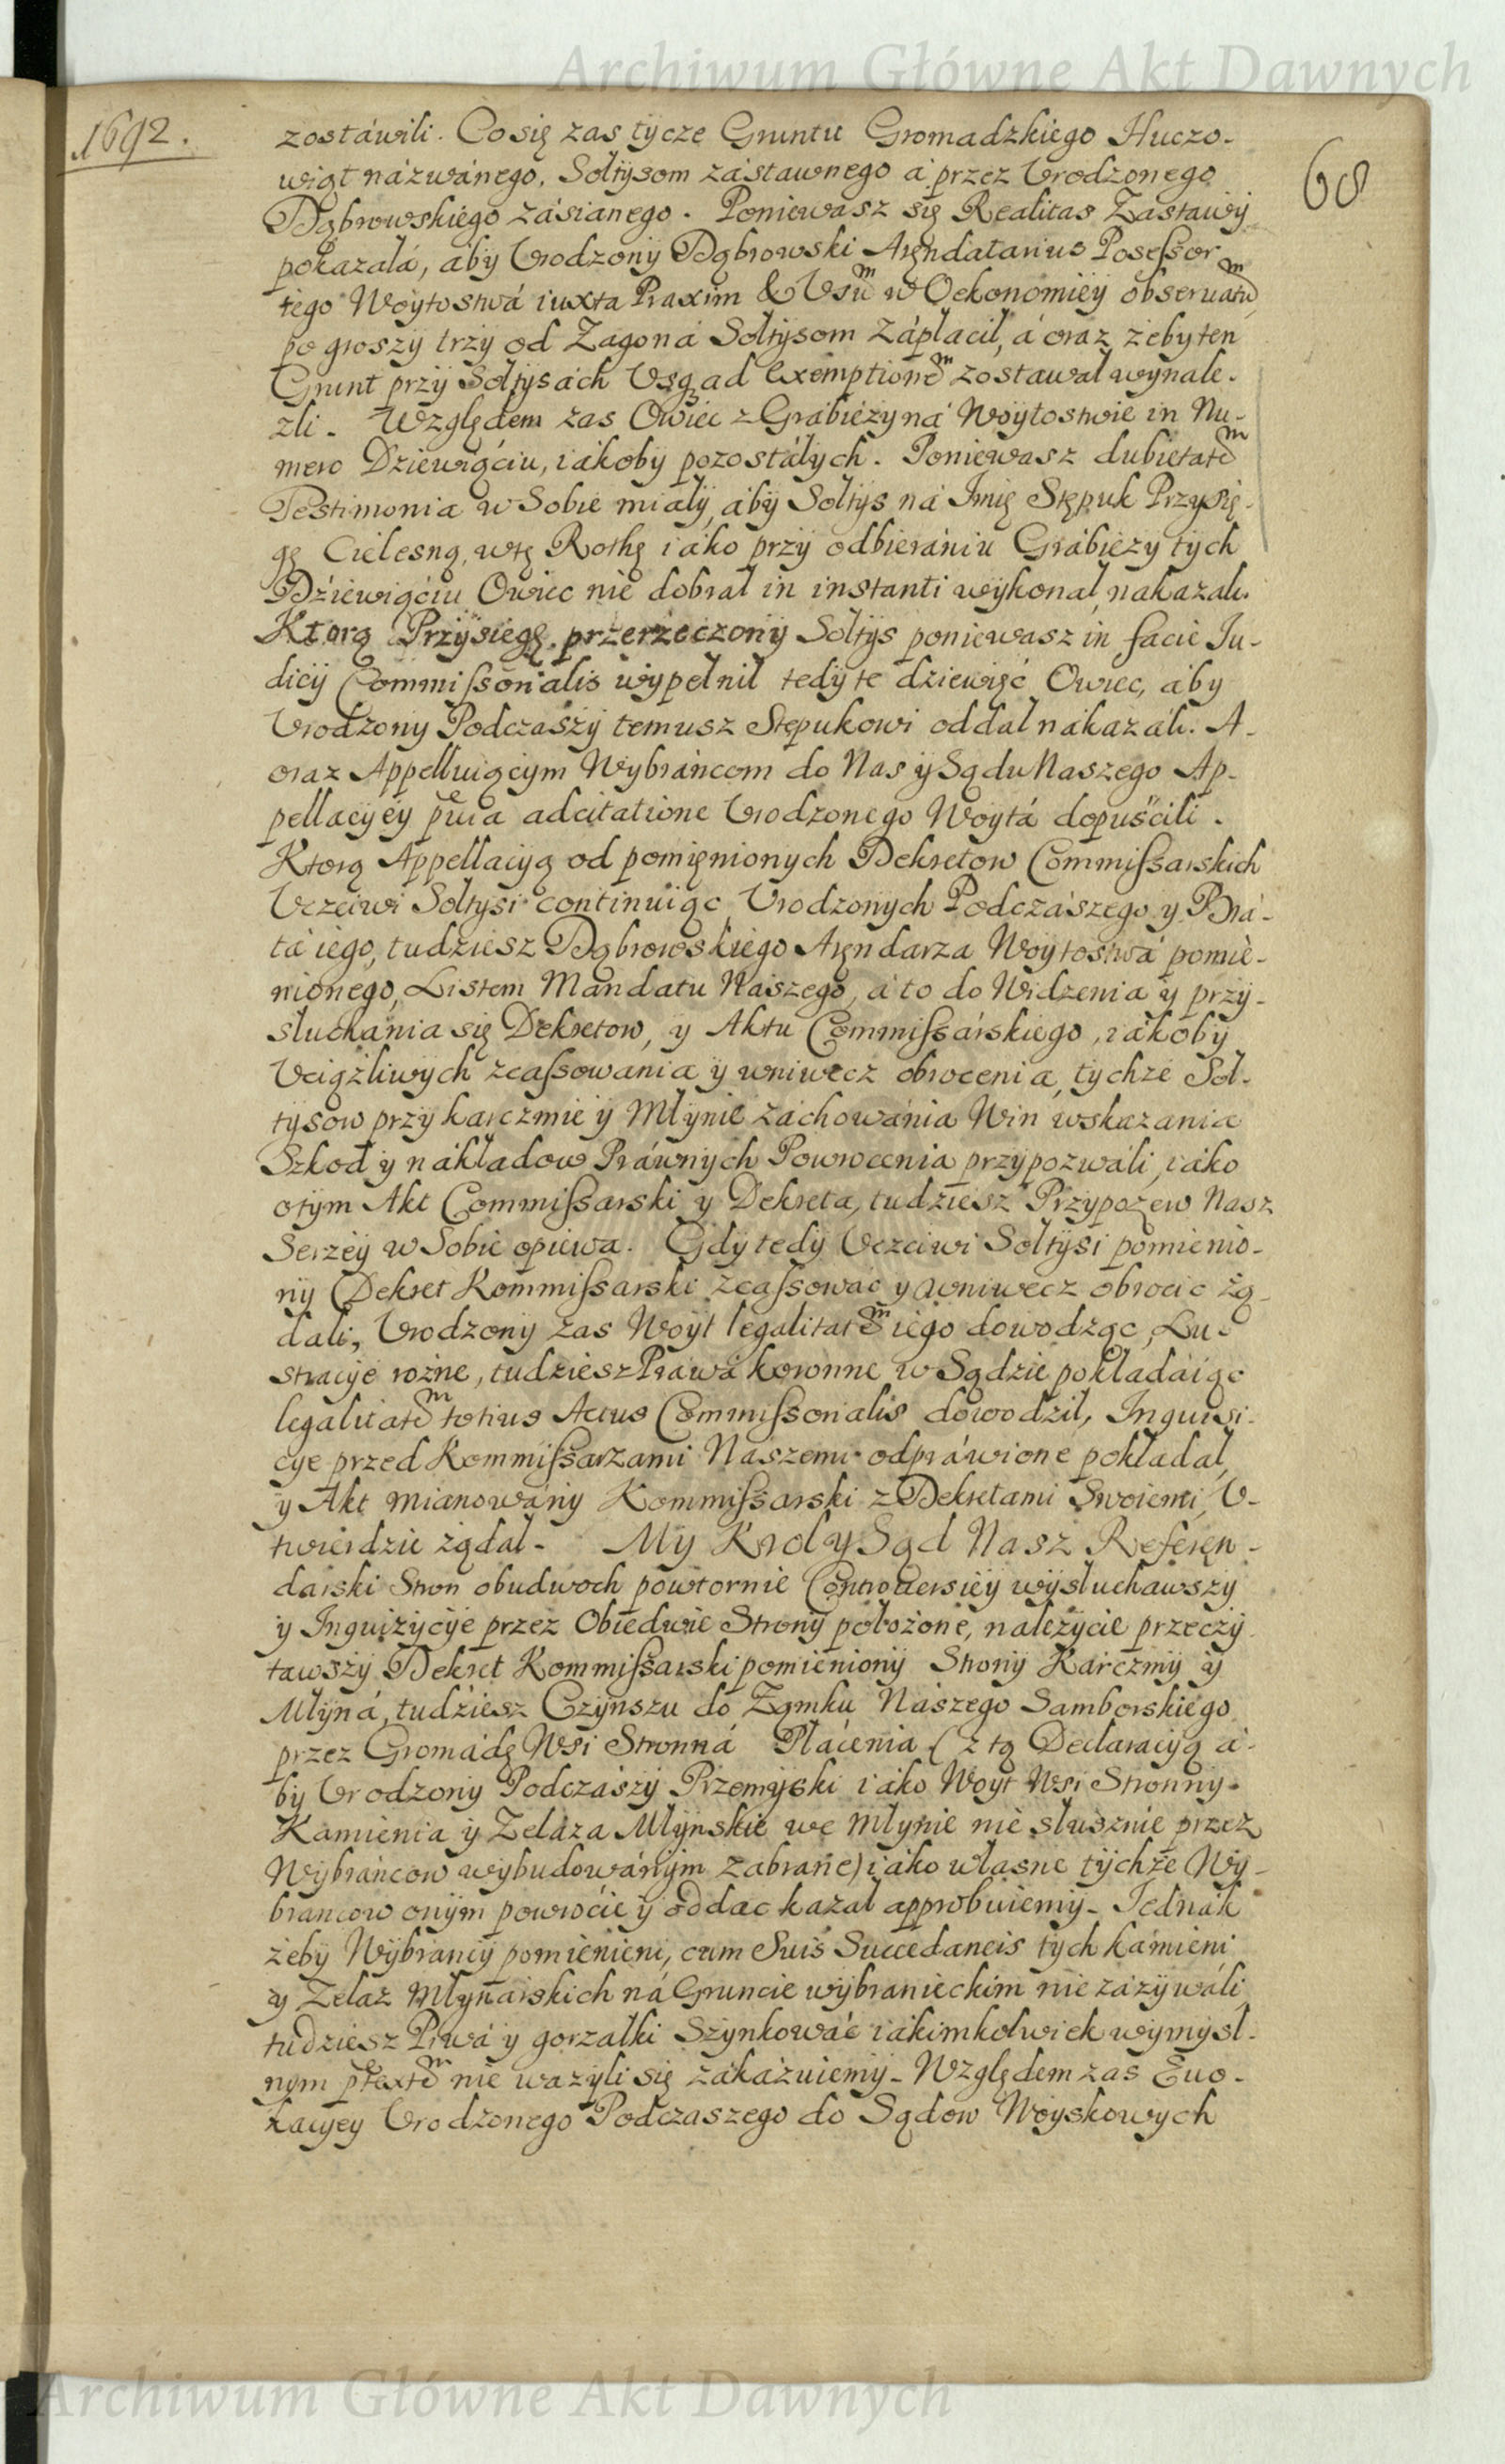 Archiwum Główne Akt Dawnych
1692.
68
zostáwili. Co się zas tycze Gruntu Gromadzkiego Huczo-
wiąt názwánego, Sołtysom zástawnego á przez Urodzonego
Dąbrowskiego zásianego. Poniewasz się Realitas Zastawy
pokazałá, aby Urodzony Dąbrowski Aręndatarius Poseſsor
tego Woytostwá iuxta Praxim & Usum w Oekonomiey obseruatum
po groszy trzy od Zagoná Sołtysom zápłacił, á oraz żeby ten
Grunt przy Sołtysách Usq ad exemptionem zostawał wynale-
zli. Względem zas Owiec z Grabieży ná Woytostwie in Nu-
mero Dziewiąciu, iakoby pozostáłych. Poniewasz dubietatem
Testimonia w Sobie miały, aby Sołtys ná Imię Stępuk Przysię-
gę Cielesną, w tę Rothę iáko przy odbierániu Grábieży tych
Dziewiąciu Owiec nie dobrał in instanti wykonał, nakazali.
Ktorą Przysięgę przerzeczony Sołtys poniewasz in facie Iu-
dicij Commiſsorialis wypełnił tedy te dziewięć Owiec, aby
Urodzony Podczaszy temusz Stępukowi oddał nákazáli. A-
oraz Appelluiącym Wybráncom do Nas y Sądu Naszego Ap-
pellacyey pria adcitatione Urodzonego Woytá dopuścili.
Ktorą Appellacyą od pomięnionych Dekretow Commiſsarskich
Uczciwi Sołtysi continuiąc, Urodzonych Podczászego y Brá-
tá iego, tudziesz Dąbrowskiego Aręndarza Woytostwá pomie-
nionego, Listem Mandatu Naszego, á to do Widzenia y przy-
słuchania się Dekretow, y Aktu Commiſsárskiego, iákoby
Uciążliwych zcaſsowania y wniwecz obrocenia, tychże Soł-
tysow przy karczmie y Młynie záchowánia Win wskazania
Szkod y nákładow Práwnych Powrocenia przypozwáli, iáko
o tym Akt Commiſsarski y Dekreta, tudziesz Przypozew Nasz
Serzey w Sobie opiewa. Gdy tedy Uczciwi Sołtysi pomienio-
ny Dekret Kommiſsarski zcaſsowác y wniwecz obrocic żą-
dali, Urodzony zas Woyt legalitatem iego dowodząc, Lu-
stracye rożne, tudziesz Prawá koronne w Sądzie pokładáiąc
legalitatem totius Actus Commiſsorialis dowodził, Inquisi-
cye przed Kommiſsarzami Naszemi odpráwione pokładał,
y Akt mianowány Kommiſsarski z Dekretami Swoiemi, U-
twierdzic żądał. My Krol y Sąd Nasz Referęn-
darski Stron obudwoch powtornie Controuersiey wysłuchawszy
y Inquizycye przez Obiedwie Strony położone, należycie przeczy
tawszy Dekret Kommiſsarski pomieniony Strony Karczmy y
Młyná, tudziesz Czynszu do Zamku Naszego Samborskiego
przez Gromádę Wsi Stronná Płácenia (z tą Declaracyą á-
by Urodzony Podczászy Przemyski iáko Woyt Wsi Stronny
Kamienia y Zelaza Młynskie we młynie nie słusznie przez
Wybráncow wybudowánym zabrane) iáko własne tychże Wy-
brancow onym powrócic y oddac kazał approbuiemy. Iednák
żeby Wybrancy pomienieni, cum Suis Succedaneis tych kámieni
y Zelaz Młynarskich ná Gruncie wybranieckim nie zázywáli,
tudziesz Piwá y gorzałki Szynkowáć iákimkolwiek wymysl-
nym ptextem nie wazyli się zákázuiemy. Względem zas Euo-
kacyey Urodzonego Podczaszego do Sądow Woyskowych
Archiwum Główne Akt Dawnych